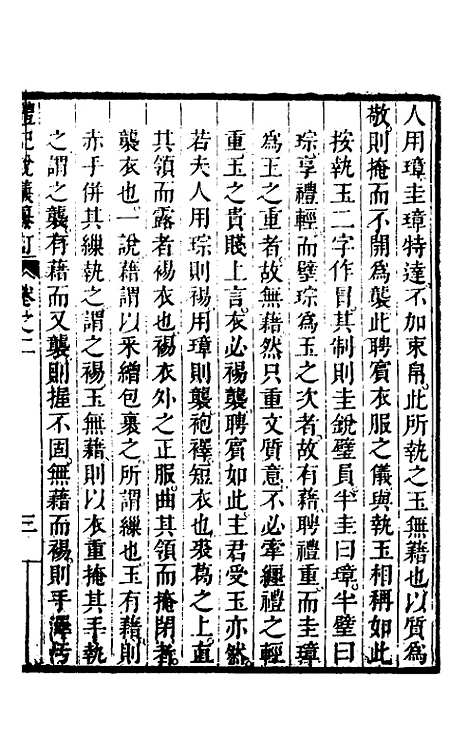 人用璋圭璋特達不加束帛此所執之玉無藉也以質爲
敬則掩而不開爲襲此聘賓衣服之儀與執玉相稱如此
按執玉二字作冒其制則圭銳璧員半圭曰璋半璧曰
琮享禮輕而璧琮爲玉之次者故有藉聘禮重而圭璋
爲王之重者故無藉然只重文質意不必牽纏禮之輕
重玉之貴賤上言衣必裼襲聘賓如此主君受玉亦然
若夫人用琮則裼用璋則襲袍襗短衣也裘葛之上直
其領而露者裼衣也裼衣外之正服曲其領而掩閉者
襲衣也一說藉謂以釆繒包裹之所謂繅也玉有藉則
赤手併其繅執之謂之裼玉無藉則以衣重掩其手執
之謂之襲有藉而又襲則握不固無藉而裼則手澤汚
禮記說義纂訂 卷之二 三